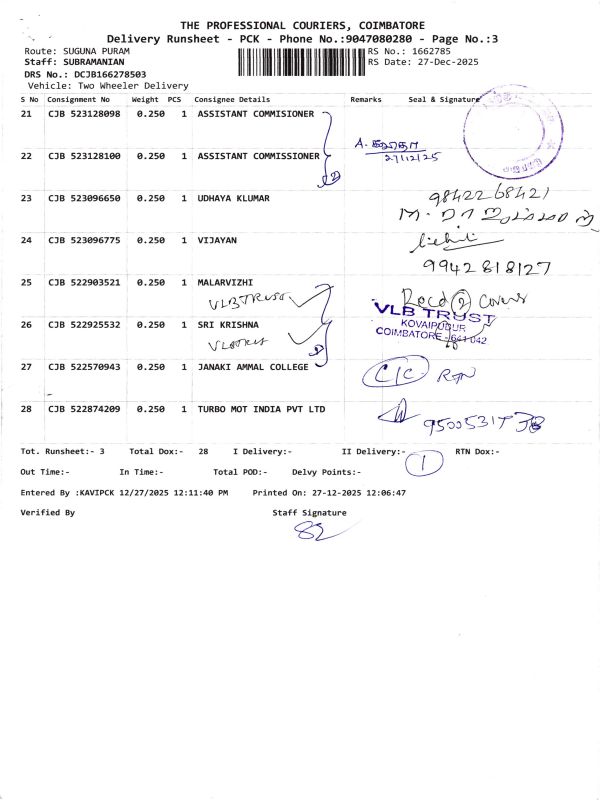 THE PROFESSIONAL COURIERS, COIMBATORE
Delivery Runsheet - PCK - Phone No.:9047080280 - Page No.:3
Route: SUGUNA PURAM RS No.: 1662785
Staff: SUBRAMANIAN RS Date: 27-Dec-2025
DRS No.: DCJB166278503
Vehicle: Two Wheeler Delivery
S No Consignment No Weight PCS Consignee Details Remarks Seal & Signature
21 CJB 523128098 0.250 1 ASSISTANT COMMISIONER
27/12/25
22 CJB 523128100 0.250 1 ASSISTANT COMMISSIONER
23 CJB 523096650 0.250 1 UDHAYA KLUMAR 9842268421
24 CJB 523096775 0.250 1 VIJAYAN
9942818127
25 CJB 522903521 0.250 1 MALARVIZHI
VLB TRUST Recd 2 Covers
VLB TRUST
KOVAIPUDUR
26 CJB 522925532 0.250 1 SRI KRISHNA
COIMBATORE - 641 042
27 CJB 522570943 0.250 1 JANAKI AMMAL COLLEGE C/C RTN
28 CJB 522874209 0.250 1 TURBO MOT INDIA PVT LTD
Tot. Runsheet:- 3 Total Dox:- 28 I Delivery:- II Delivery:- RTN Dox:-
1
Out Time:- In Time:- Total POD:- Delvy Points:-
Entered By :KAVIPCK 12/27/2025 12:11:40 PM Printed On: 27-12-2025 12:06:47
Verified By Staff Signature